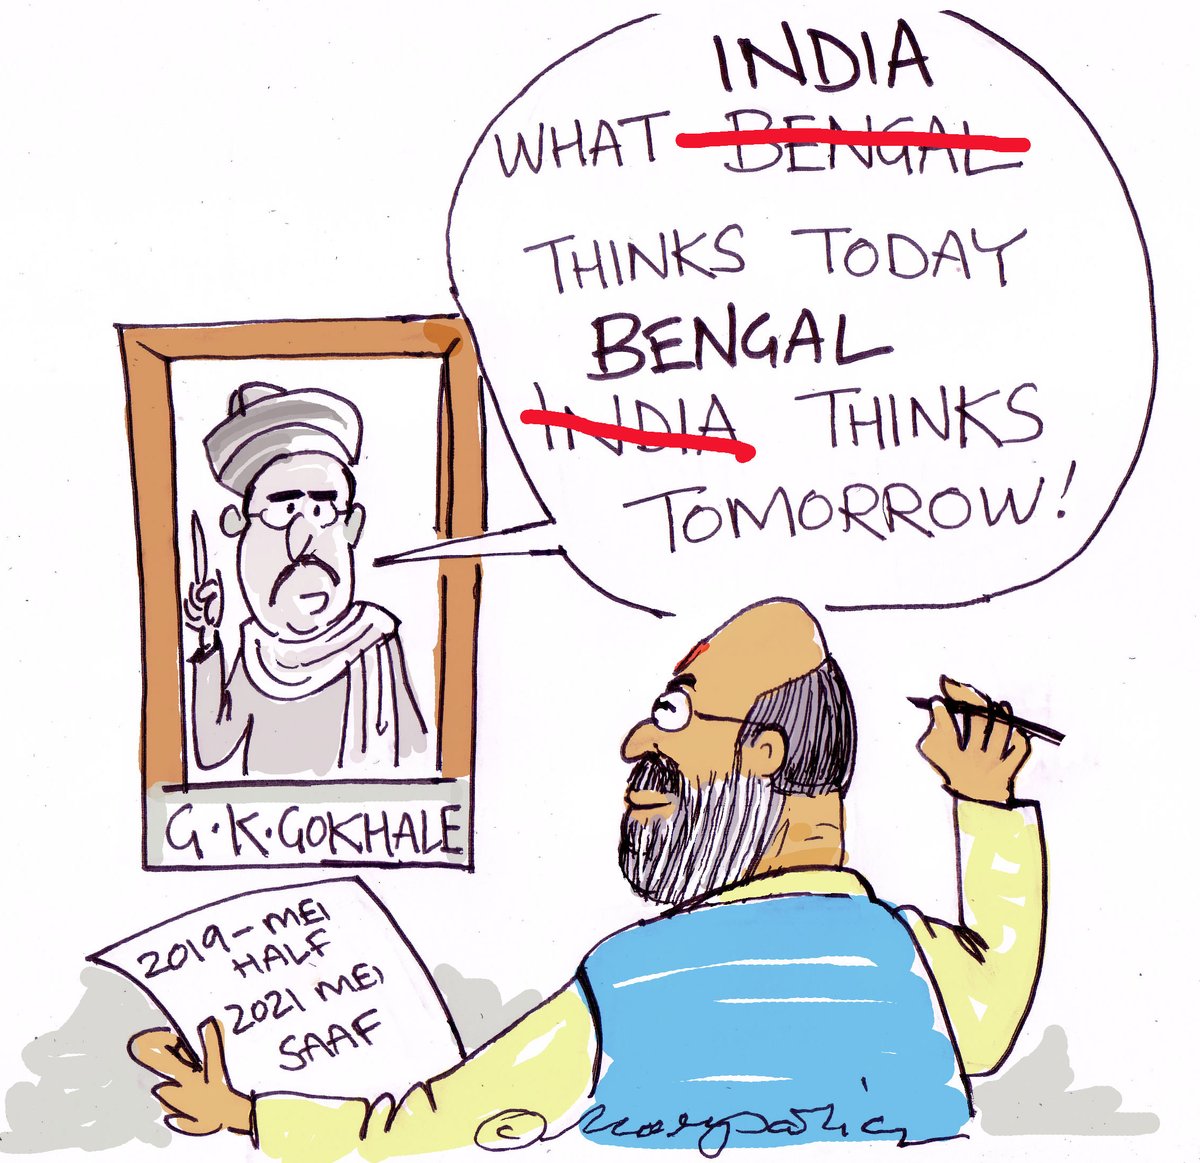 INDIA
WHAT BENGAL
THINKS TODAY
BENGAL
INDIA THINKS
TOMORROW!
G.K.GOKHALE
2019-MEI
HALF
2021 MEI
SAAF
©